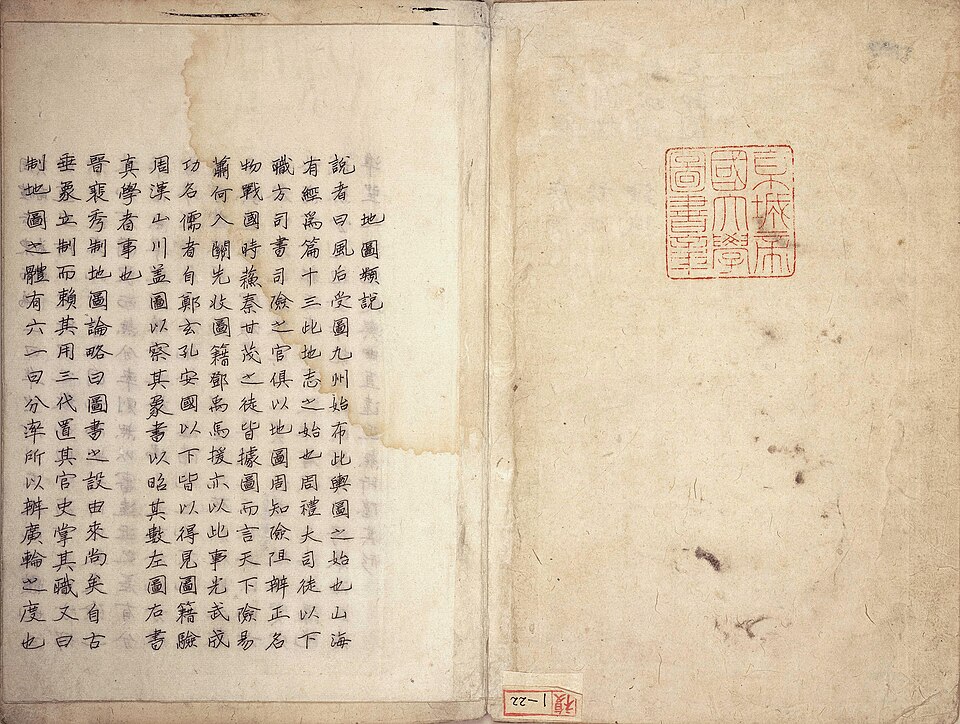 京城帝
國大學
圖書章
地圖類說
說者曰風后受圖九州始布此輿圖之始也山海
有經爲篇十三此地志之始也周禮大司徒以下
職方司書司險之官俱以地圖周知險阻辨正名
物戰國時蘇秦甘茂之徒皆據圖而言天下險易
蕭何入關先收圖籍鄧禹馬援亦以此事光武成
功名儒者自鄭玄孔安國以下皆以得見圖籍驗
周漢山川盖圖以察其象書以昭其數左圖右書
真學者事也
晉裴秀制地圖論略曰圖書之設由來尚矣自古
垂象立制而賴其用三代置其官史掌其職又曰
制地圖之體有六一曰分率所以辨廣輪之度也
複 1-22